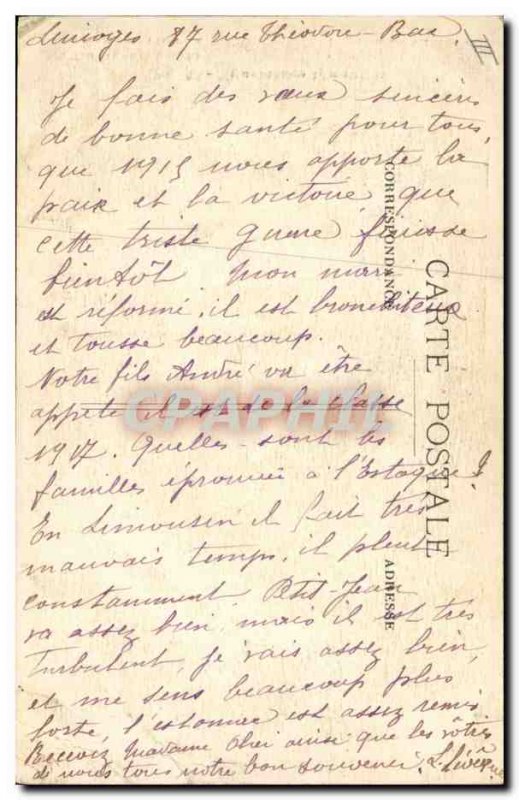 Limoges. 87 rue Théodore-Bac. III
Je fais des vœux sincères
de bonne santé pour tous,
que 1915 nous apporte la
paix et la victoire que
cette triste guerre finisse
bientôt mon mari
est réformé, il est bronchiteux
et tousse beaucoup.
Notre fils André va être
appelé il est de la classe
1917. Quelles sont les
familles éprouvées à l'Estaque ?
En Limousin il fait très
mauvais temps, il pleut
constamment. Ptit-Jean
va assez bien, mais il est très
turbulent, je vais assez bien,
et me sens beaucoup plus
forte, l'estomac est assez remis
Recevez Madame ainsi que les vôtres
de nous tous notre bon souvenir. L. Lévêque
CORRESPONDANCE
CARTE POSTALE
ADRESSE
CPAPHIL